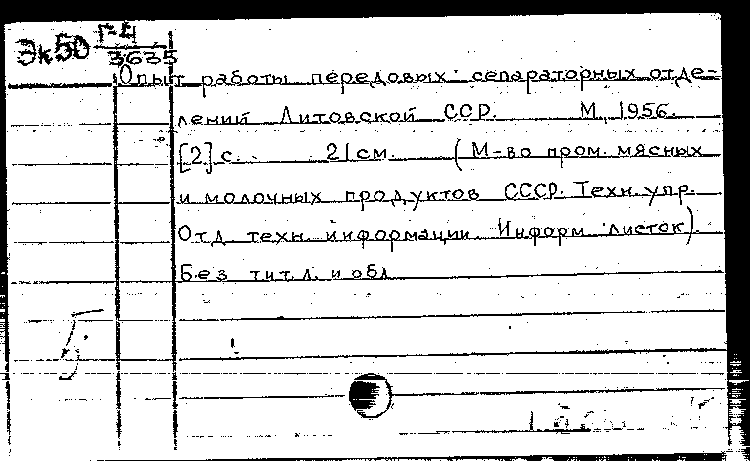 Эк50 Г-4
3635
Опыт работы передовых сепараторных отде=
лений Литовской ССР. М., 1956.
[2] с. 21 см. (М-во пром. мясных
и молочных продуктов СССР. Техн. упр.
Отд техн. информации. Информ листок).
Без тит. л. и обл
Б.